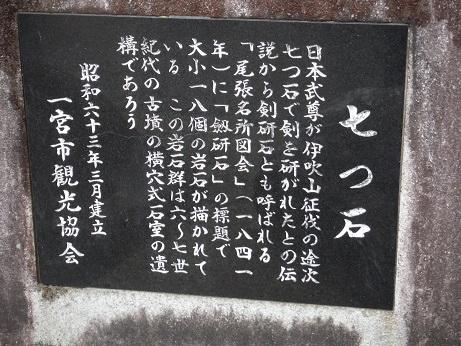 七つ石
日本武尊が伊吹山征伐の途次
七つ石で剣を研がれたとの伝
説から剣研石とも呼ばれる
「尾張名所図会」(一八四一
年)に「剱研石」の標題で
大小一八個の岩石が描かれて
いる この岩石群は六〜七世
紀代の古墳の横穴式石室の遺
構であろう
昭和六十三年三月建立
一宮市観光協会